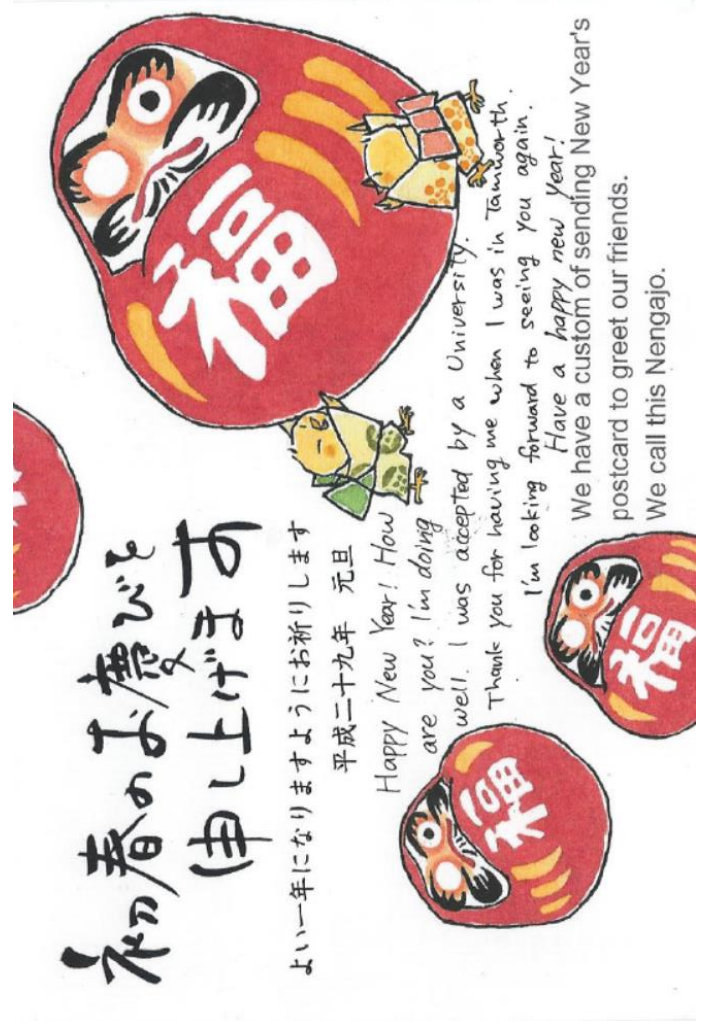 初春のお慶びを
申し上げます
よい一年になりますようにお祈りします
平成二十九年 元旦
Happy New Year! How
are you? I'm doing
well. I was accepted by a University.
Thank you for having me when I was in Tamworth.
I'm looking forward to seeing you again.
Have a happy new year!
We have a custom of sending New Year's
postcard to greet our friends.
We call this Nengajo.
福
福
福